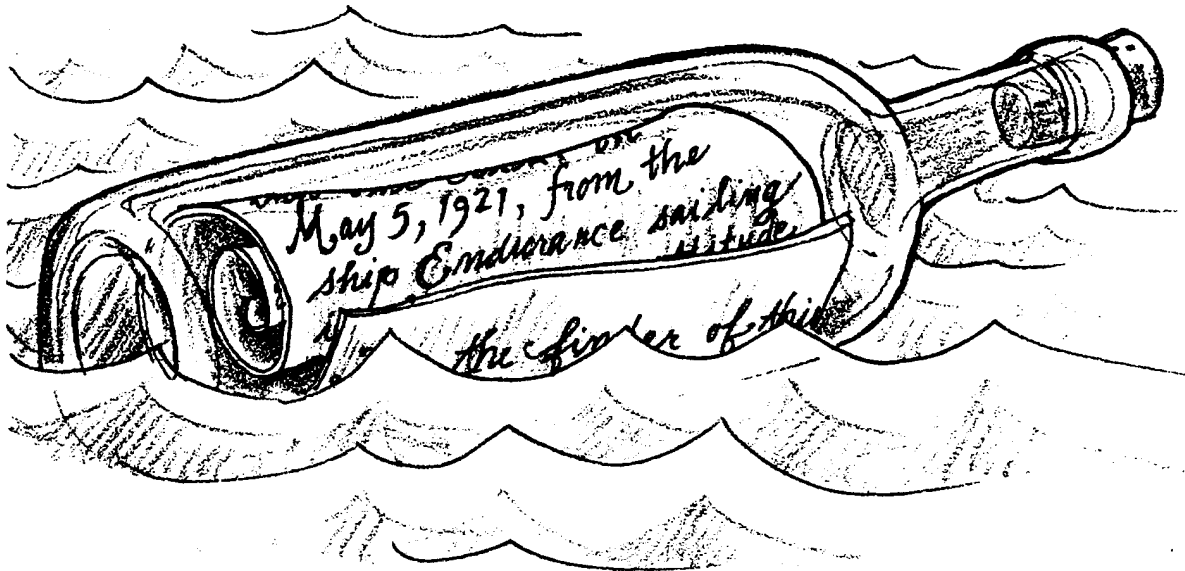 on
May 5, 1921, from the
ship Endurance sailing
the finder of this